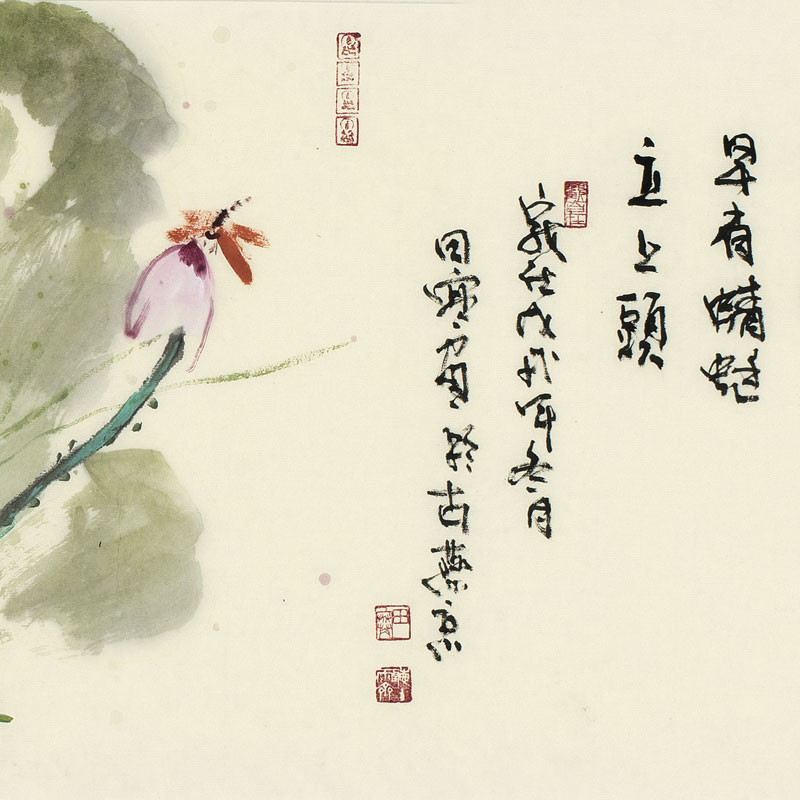 早有蜻蜓
立上頭
歲在戊戌年冬月
田寒畫於古燕京